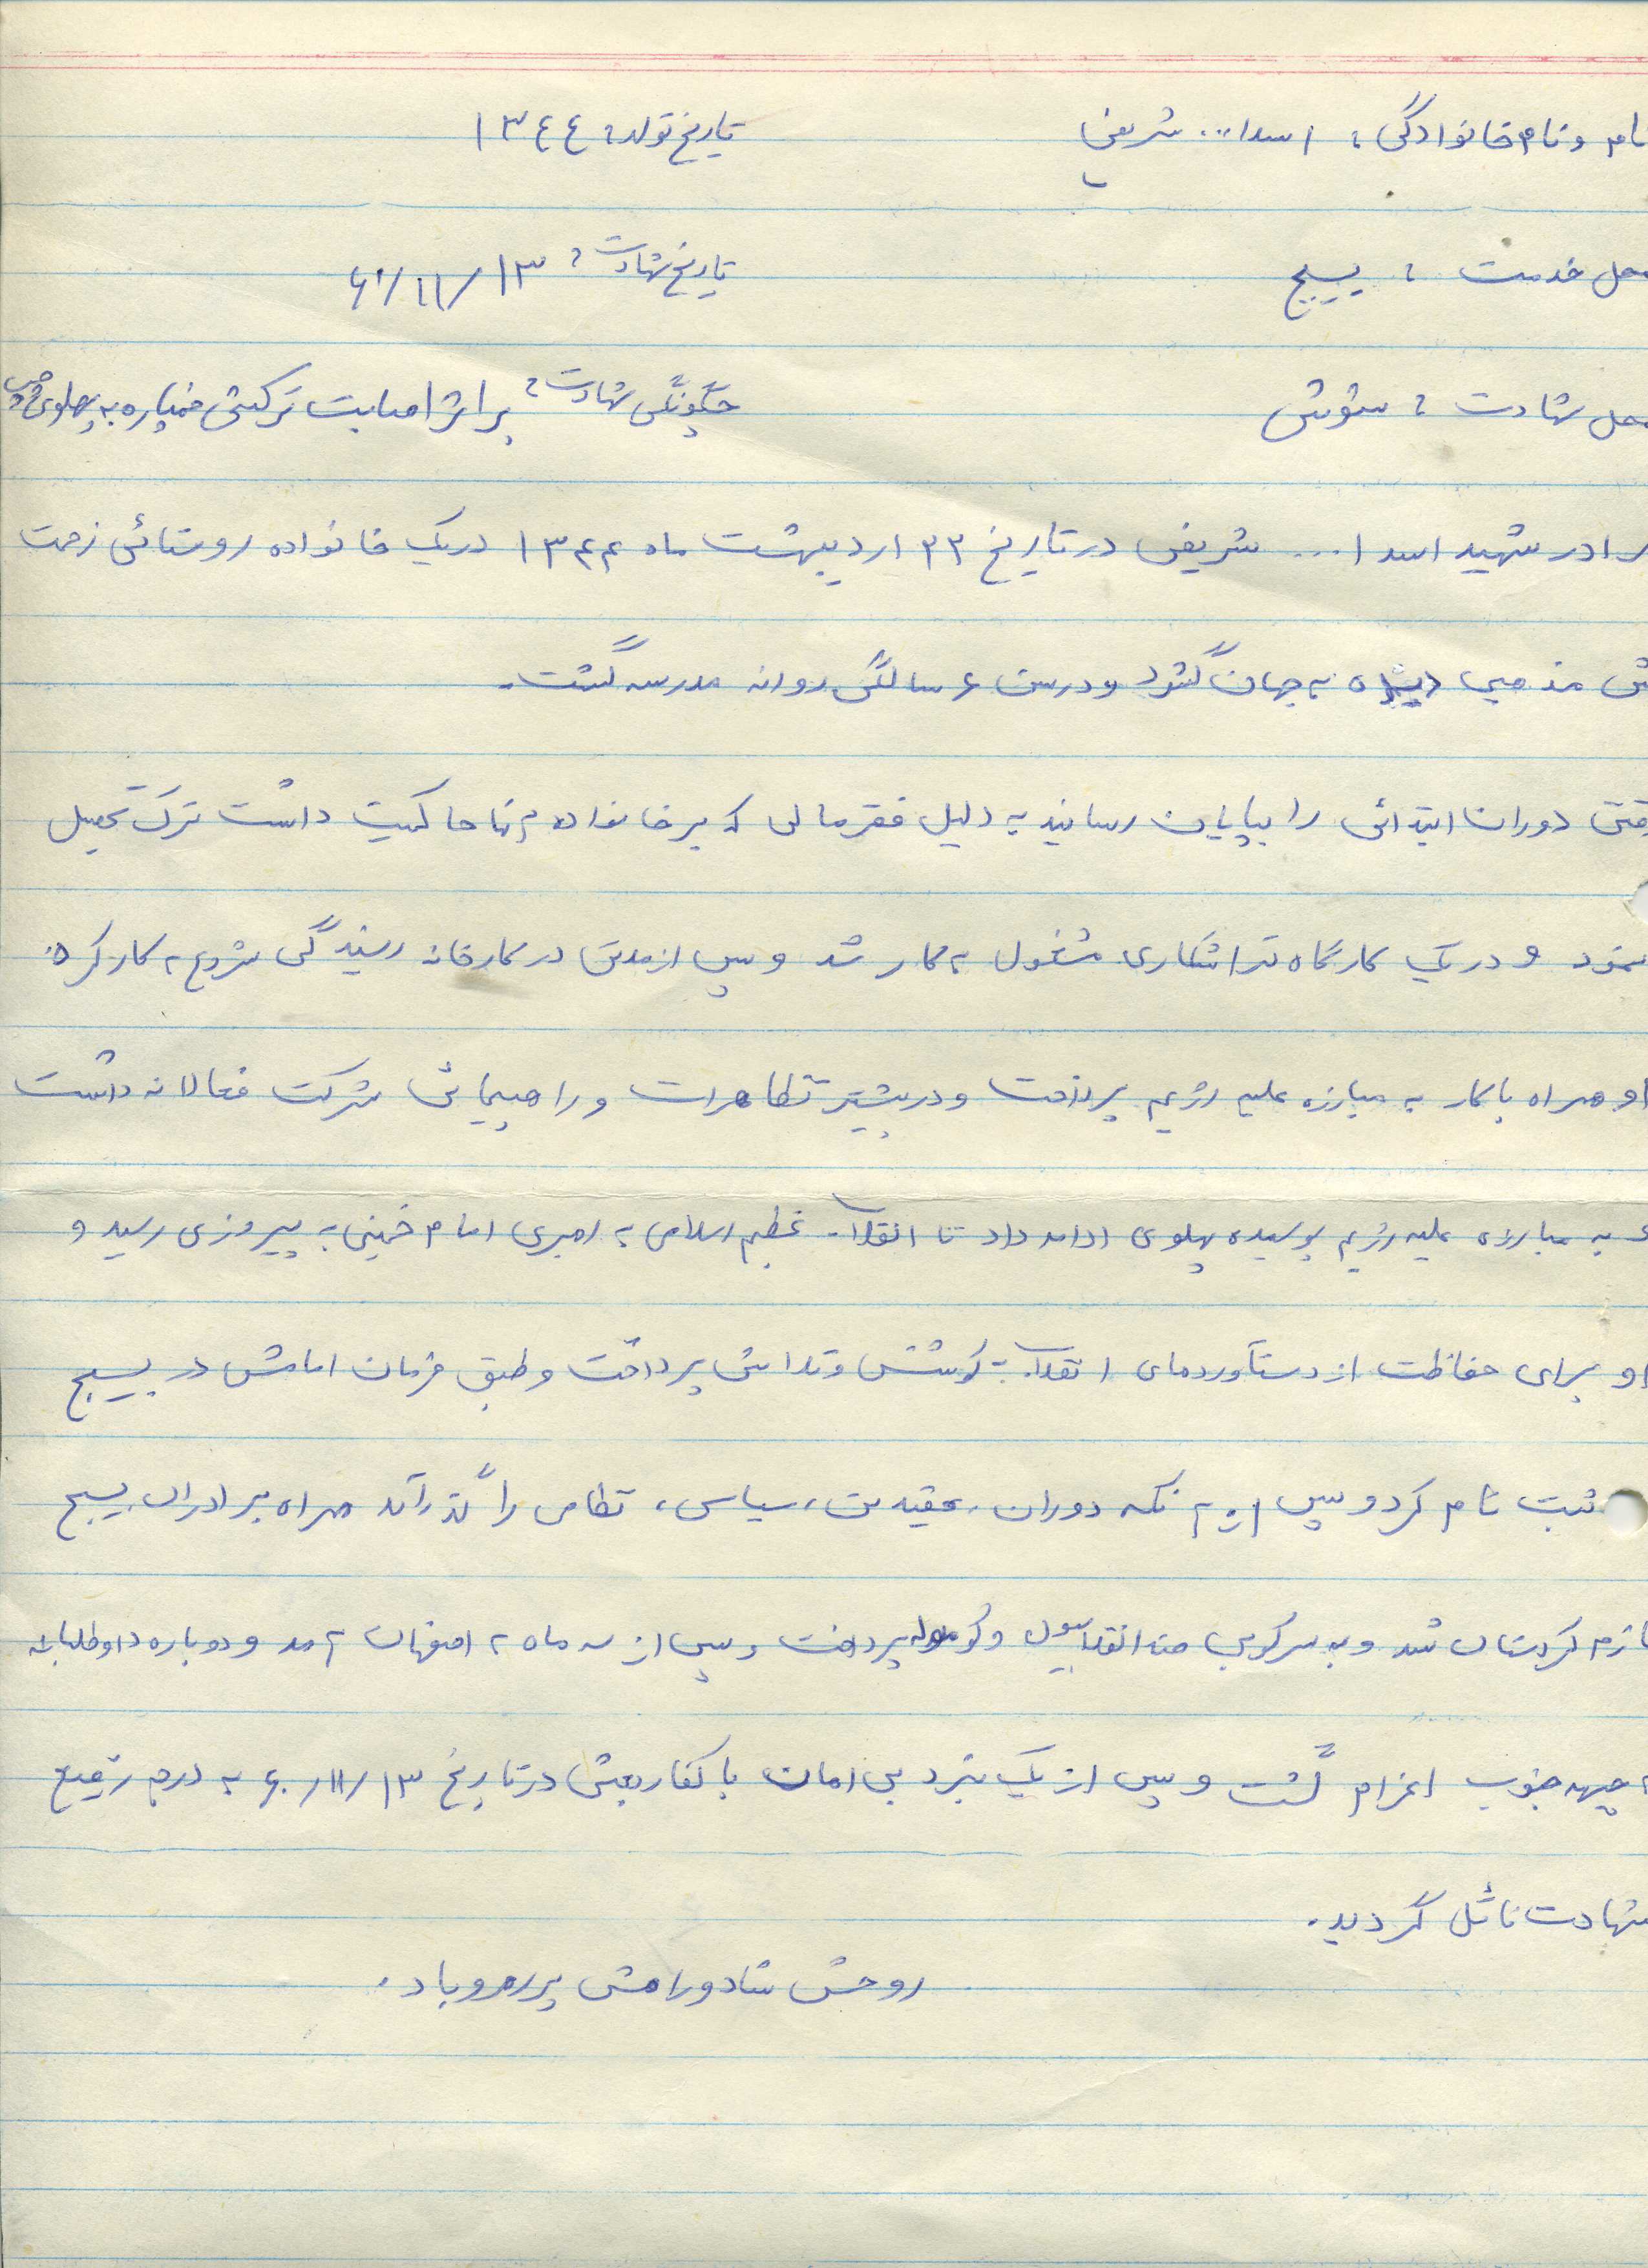 نام و نام خانوادگی : اسدا... شریفی تاریخ تولد : ۱۳٤٤
محل خدمت : بسیج تاریخ شهادت :
محل شهادت : شوش چگونگی شهادت : بر اثر اصابت ترکش خمپاره به پهلوی چپ
برادر شهید اسدا... شریفی در تاریخ ۲۳ اردیبهشت ماه ۱۳۴۴ در یک خانواده روستائی زحمت
کش مذهبی دیده به جهان گشود و در سن ۶ سالگی روانه مدرسه گشت.
وقتی دوران ابتدائی را بپایان رسانید به دلیل فقر مالی که بر خانواده آنها حاکمیت داشت ترک تحصیل
نمود و در یک کارگاه تراشکاری مشغول به کار شد و پس از مدتی در کارخانه ریسندگی شروع به کار کرد.
او همراه با کار به مبارزه علیه رژیم پرداخت و در بیشتر تظاهرات و راهپیمائی شرکت فعالانه داشت
و به مبارزه علیه رژیم پوسیده پهلوی ادامه داد تا انقلاب عظیم اسلامی به رهبری امام خمینی به پیروزی رسید و
او برای حفاظت از دستآوردهای انقلاب به کوشش و تلاش پرداخت و طبق فرمان امامش در بسیج
ثبت نام کرد و پس از آنکه دوران عقیدتی، سیاسی، نظامی را گذراند همراه برادران بسیج
عازم کردستان شد و به سرکوبی ضد انقلابیون و کومله پرداخت و پس از سه ماه به اصفهان آمد و دوباره داوطلبانه
به جبهه جنوب اعزام گشت و پس از یک نبرد بی امان با کفار بعثی در تاریخ ۱۳/۱۱/۶۰ به درجه رفیع
شهادت نائل گردید.
روحش شاد و راهش پر رهرو باد.